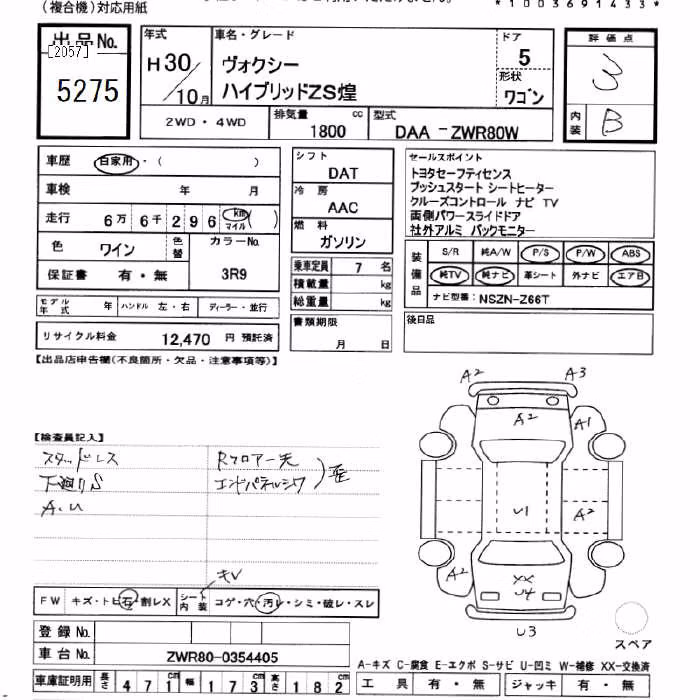 (複合機)対応用紙
*1003691433*
出品No.
[2057]
5275
年式
H30/10月
車名・グレード
ヴォクシー
ハイブリッドZS煌
ドア
5
形状
ワゴン
評価点
3
内装
B
2WD・4WD
排気量
1800 cc
型式
DAA -ZWR80W
車歴
自家用・( )
車検
年 月
走行
6万 6千 2 9 6 km マイル ( )
色
ワイン
色替
カラーNo.
3R9
保証書
有・無
モデル年式
年
ハンドル
左・右
ディーラー・並行
リサイクル料金
12,470 円 預託済
シフト
DAT
冷房
AAC
燃料
ガソリン
乗車定員
7 名
積載量
kg
総重量
kg
書類期限
月 日
セールスポイント
トヨタセーフティセンス
プッシュスタート シートヒーター
クルーズコントロール ナビ TV
両側パワースライドドア
社外アルミ バックモニター
装備品
S/R 純A/W P/S P/W ABS
純TV 純ナビ 革シート 外ナビ エアB
ナビ型番: NSZN-Z66T
後日品
【出品店申告欄(不良箇所・欠品・注意事項等)】
【検査員記入】
スタッドレス
下廻りS
A.U
Rフロアー先
エンドパネルシワ
)歪
キレ
FW
キズ・トビ石・割レX
シート内装
コゲ・穴・汚レ・シミ・破レ・スレ
登録No.
車台No.
ZWR80-0354405
車庫証明用
長さ 4 7 1 幅 1 7 3 高さ 1 8 2
A2
A3
A2
A1
U1
A2
A2
XX
U4
U3
スペア
A-キズ C-腐食 E-エクボ S-サビ U-凹ミ W-補修 XX-交換済
工具 有・無 ジャッキ 有・無